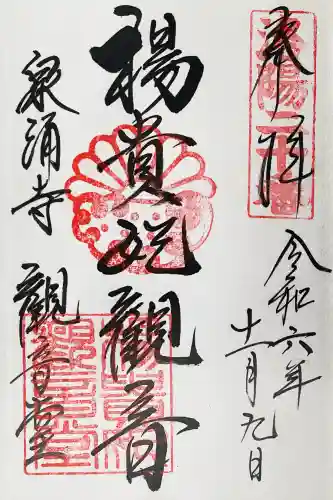 奉拝
令和六年
十一月九日
楊貴妃観音
泉涌寺
観音堂